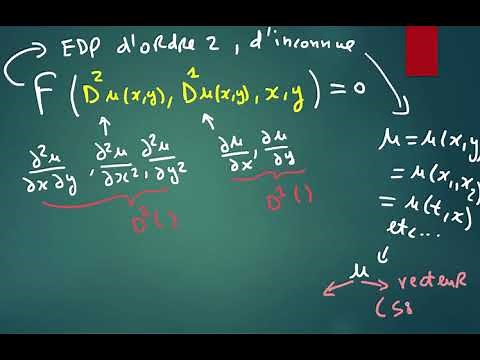 EDP d'ordre 2, d'inconnue
F(D²u(x,y), D¹u(x,y), x, y) = 0
∂²u/∂x∂y, ∂²u/∂x², ∂²u/∂y²
∂u/∂x, ∂u/∂y
D²( )
D¹( )
u = u(x,y
= u(x₁,x₂)
= u(t,x)
etc...
u
vecteur
(S